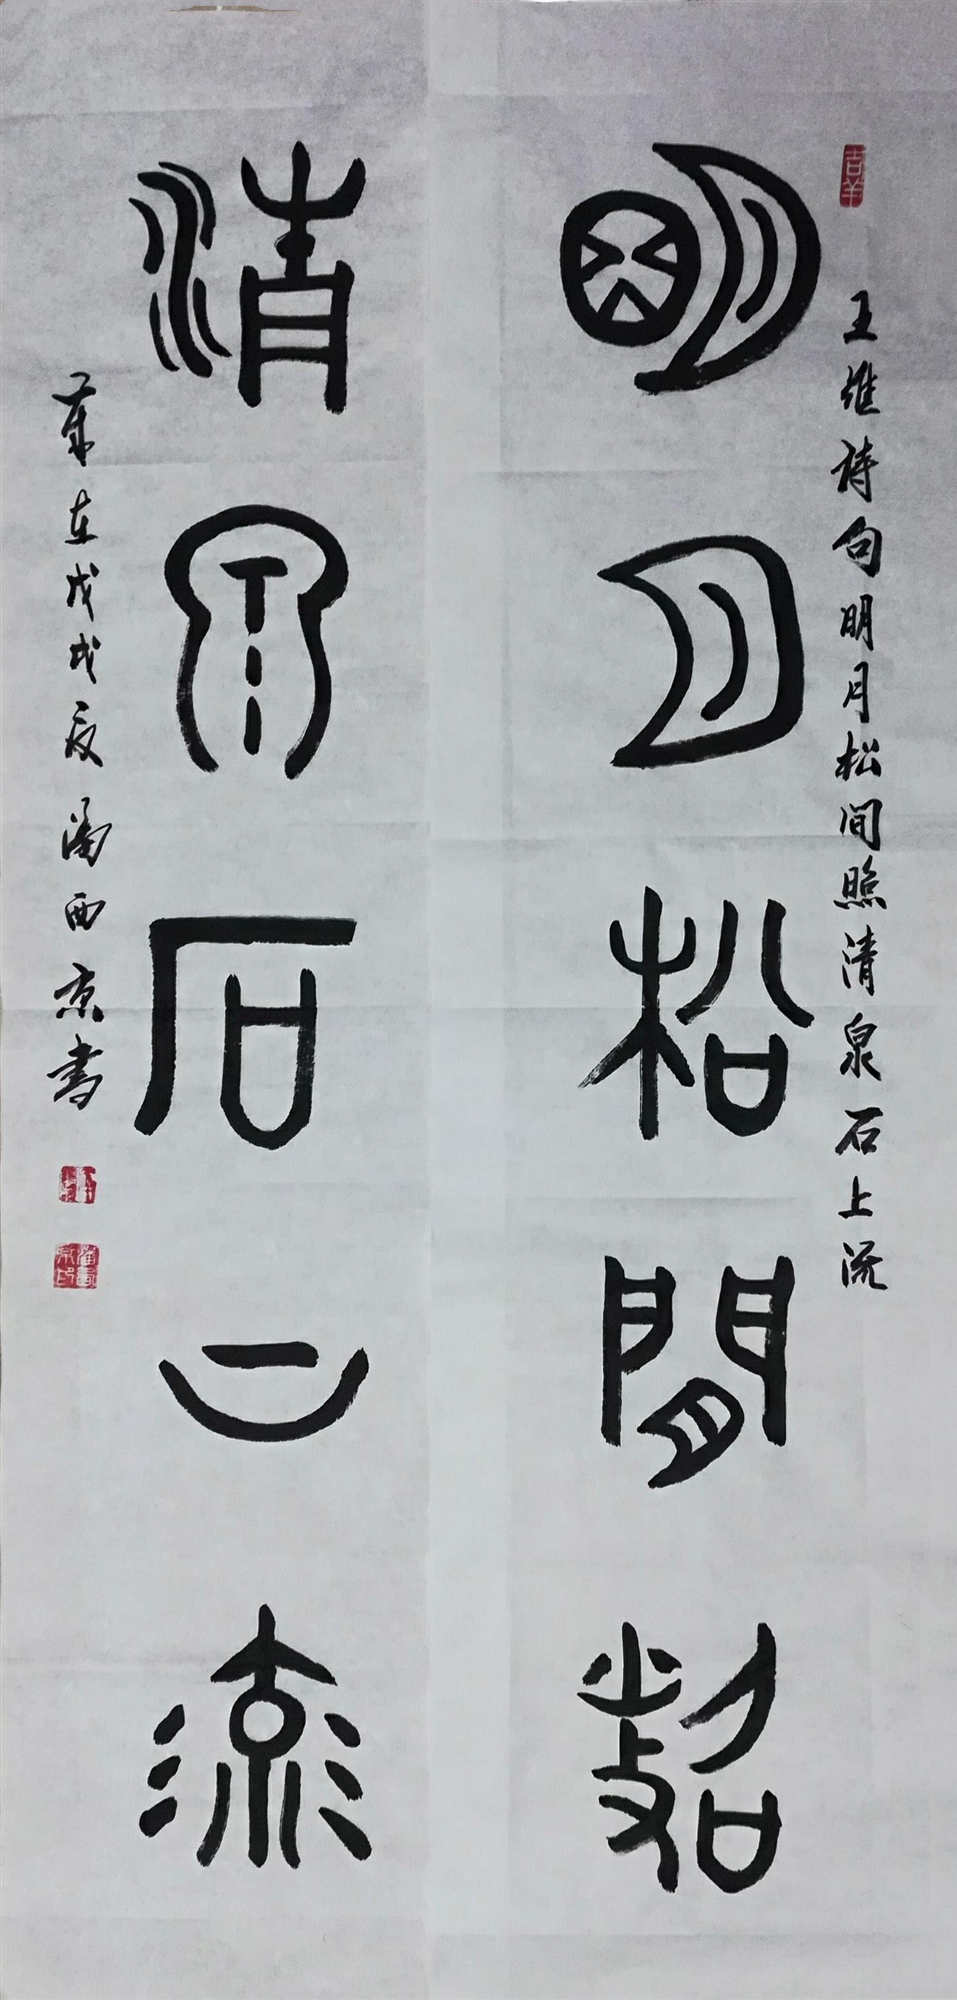 吉羊
王维诗句明月松间照清泉石上流
明月松間照
清泉石上流
歲在戊戌夏潘西京书